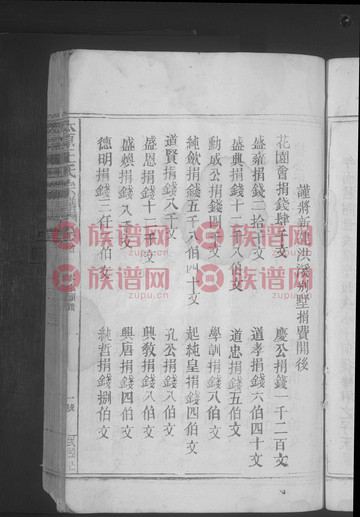 謹將新建洪溪別墅捐費開後
花園會捐錢肆千文
慶公捐錢一千二百文
盛藻捐錢二拾千文
道孝捐錢六伯四十文
盛興捐錢十二千八伯文
道忠捐錢五伯文
勳成公捐錢四千文
學訓捐錢八伯文
純歛捐錢五千八伯四十文
起純皇捐錢四伯文
道賢捐錢八千文
孔公捐錢八伯文
盛恩捐錢十二千文
興教捐錢八伯文
盛煥捐錢八千文
興唐捐錢四伯文
德明捐錢三仟二伯文
純哲捐錢捌伯文
太原王氏
一號
族谱网
zupu.cn
族谱网
zupu.cn
族谱网
zupu.cn
族谱网
zupu.cn
族谱网
zupu.cn
族谱网
zupu.cn